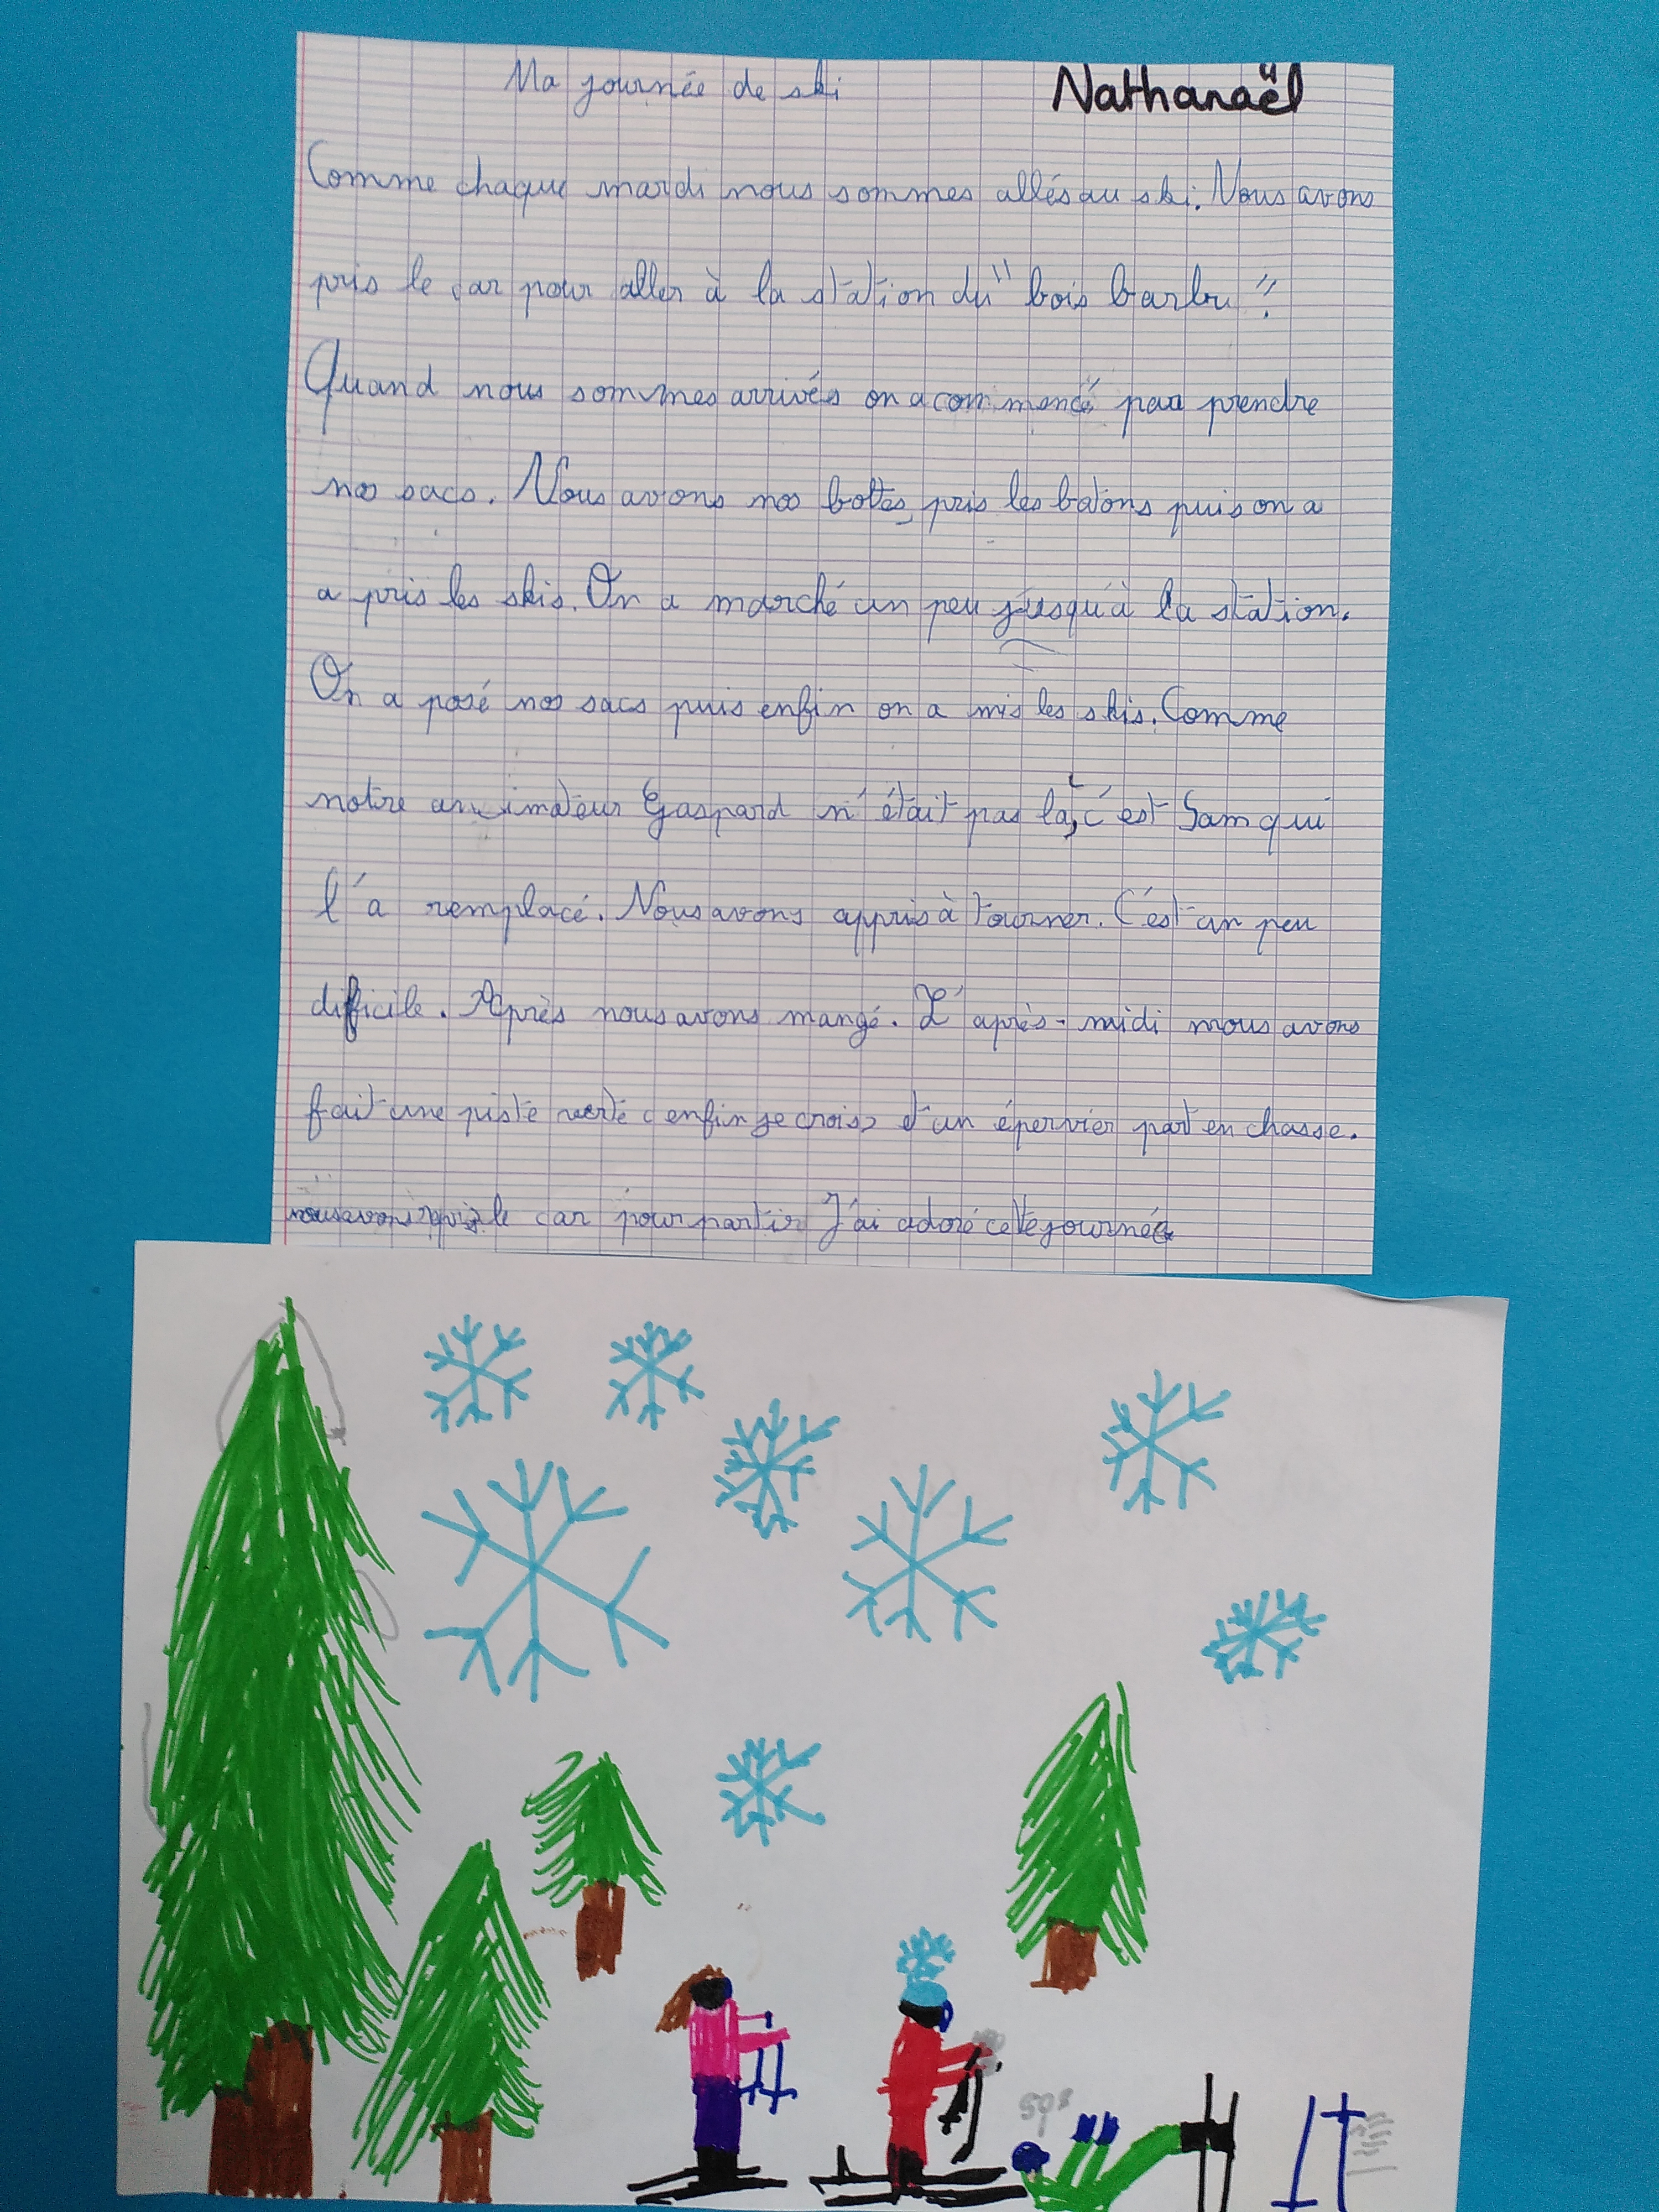 Ma journée de ski
Nathanaël
Comme chaque mardi nous sommes allés au ski. Nous avons
pris le car pour aller à la station du "bois barbu".
Quand nous sommes arrivés on a commencé par prendre
nos sacs. Nous avons nos bottes, pris les batons puis on a
a pris les skis. On a marché un peu jusqu'à la station.
On a posé nos sacs puis enfin on a mis les skis. Comme
notre animateur Gaspard n'était pas là, c'est Sam qui
l'a remplacé. Nous avons appris à tourner. C'est un peu
difficile. Après nous avons mangé. L'après-midi nous avons
fait une piste verte (enfin je crois) d'un épervier part en chasse.
nous avons repris le car pour partir J'ai adoré cette journée